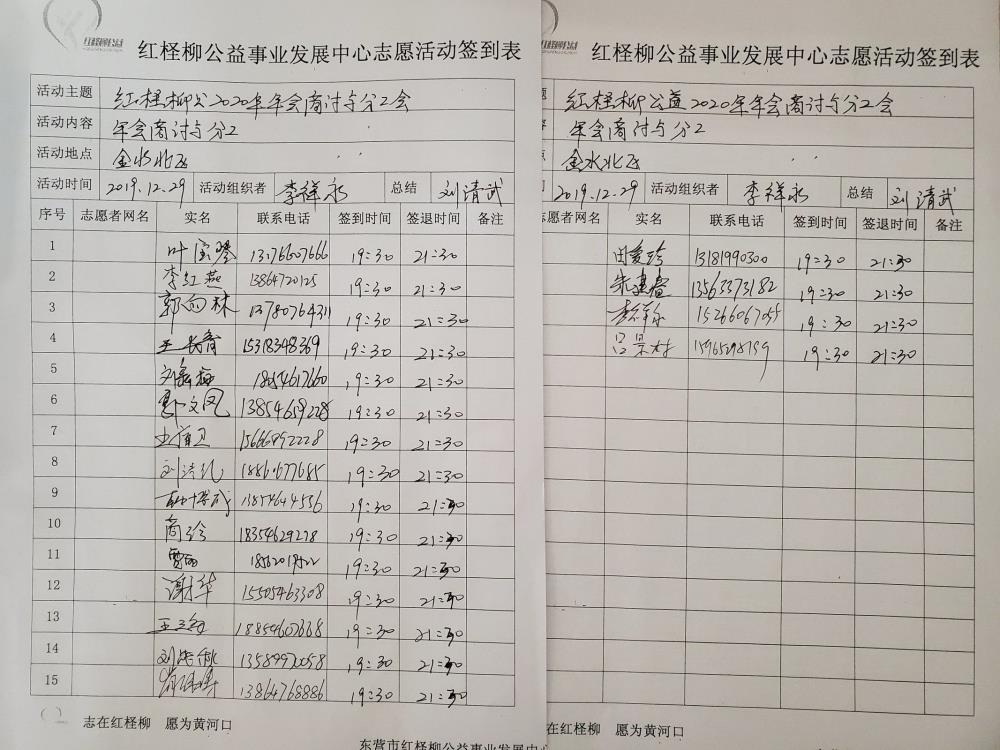 红柽柳公益事业发展中心志愿活动签到表
活动主题 红柽柳公2020年年会商讨与分工会
活动内容 年会商讨与分工
活动地点 金水北区
活动时间 2019.12.29 活动组织者 李祥永 总结 刘清武
序号 志愿者网名 实名 联系电话 签到时间 签退时间 备注
1 叶宝琴 13176607666 19:30 21:30
2 李红燕 13864720125 19:30 21:30
3 郭向林 13780764311 19:30 21:30
4 王长青 15318348369 19:30 21:30
5 18654617660 19:30 21:30
6 文凤 13854659228 19:30 21:30
7 15666892228 19:30 21:30
8 19:30 21:30
9 19:30 21:30
10 商玲 18354629278 19:30 21:30
11 19:30 21:30
12 谢华 15505463308 19:30 21:30
13 18854607668 19:30 21:30
14 13589970058 19:30 21:30
15 13864768886 19:30 21:30
志在红柽柳 愿为黄河口
东营市红柽柳公益事业发展中心
红柽柳公益事业发展中心志愿活动签到表
题 红柽柳公益2020年年会商讨与分工会
年会商讨与分工
点 金水北区
2019.12.29 活动组织者 李祥永 总结 刘清武
志愿者网名 实名 联系电话 签到时间 签退时间 备注
田爱珍 13181990300 19:30 21:30
13563373182 19:30 21:30
15266067055 19:30 21:30
吕景村 15965298759 19:30 21:30
志在红柽柳 愿为黄河口